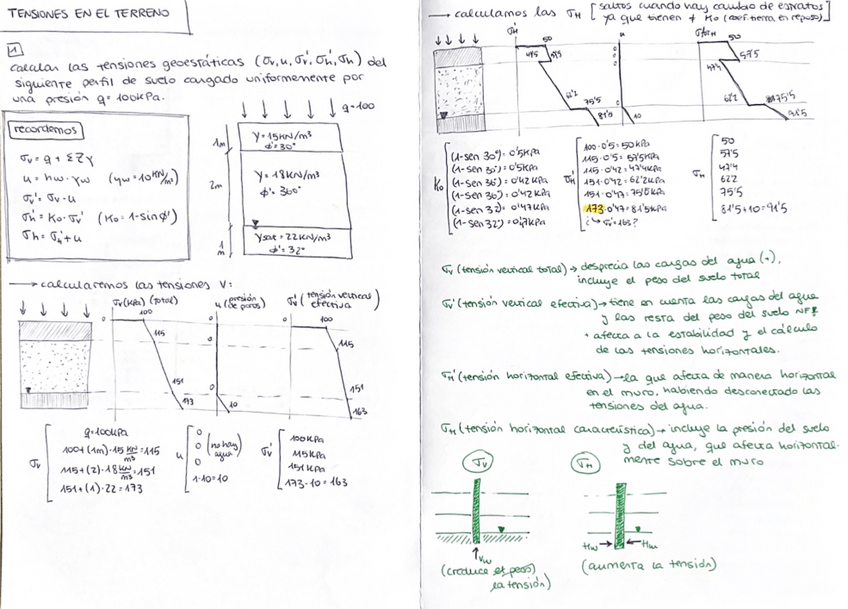 TENSIONES EN EL TERRENO
1
calcular las tensiones geoestáticas (σv, u, σv', σh', σh) del
siguiente perfil de suelo cargado uniformemente por
una presión q= 100kPa.
recordemos
σv = q + ΣZγ
u = hw · γw (γw = 10 KN/m³)
σv' = σv - u
σh' = Ko · σv' (Ko = 1-senϕ')
σh = σh' + u
q=100
1m
γ = 15KN/m³
ϕ' = 30°
2m
γ = 18KN/m³
ϕ' = 360°
1m
γsat = 22KN/m³
ϕ' = 32°
→ calcularemos las tensiones V:
σv (KPa) (total)
u (presión de poros)
σv' (tensión vertical efectiva)
0 100 0 0 100
115 0 115
151 0 151
173 10 163
σv
q=100kPa
100 + (1m) · 15 KN/m³ = 115
115 + (2) · 18 KN/m³ = 151
151 + (1) · 22 = 173
u
0
0 (no hay agua)
0
1·10 = 10
σv'
100KPa
115KPa
151KPa
173-10 = 163
→ calculamos las σH [saltos cuando hay cambio de estratos]
ya que tienen ≠ Ko (coef. tierra en reposo)
σH' u σH
50 0 50
47'5 57'5 0 47'4 57'5
62'2 75'5 0 62'2 75'5
81'5 10 91'5
Ko
(1-sen 30°) = 0'5KPa
(1-sen 30°) = 0'5KPa
(1-sen 36°) = 0'42 KPa
(1-sen 36°) = 0'42KPa
(1-sen 32°) = 0'47KPa
(1-sen 32°) = 0'47KPa
σH'
100·0'5 = 50KPa
115·0'5 = 57'5KPa
115·0'42 = 47'4KPa
151·0'42 = 62'2KPa
151·0'47 = 75'5KPa
173·0'47 = 81'5KPa
¿ → σv' = 163?
σH
50
57'5
47'4
62'2
75'5
81'5+10 = 91'5
σv (tensión vertical total) → desprecia las cargas del agua (+),
incluye el peso del suelo total
σv' (tensión vertical efectiva) → tiene en cuenta las cargas del agua
y las resta del peso del suelo NF!
· afecta a la estabilidad y el cálculo
de las tensiones horizontales.
σH' (tensión horizontal efectiva) → la que afecta de manera horizontal
en el muro, habiendo desconectado las
tensiones del agua.
σH (tensión horizontal característica) → incluye la presión del suelo
y del agua, que afecta horizontal-
mente sobre el muro
σv
σH
Vw
Hw Hw
(produce
la tensión)
(aumenta la tensión)